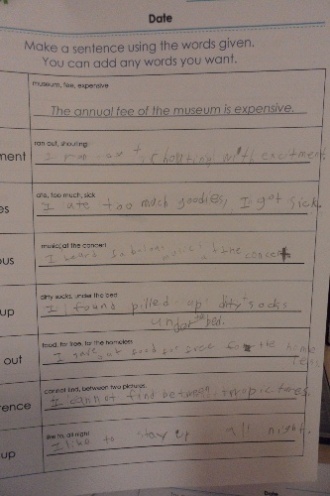 Date
Make a sentence using the words given.
You can add any words you want.
museum, fee, expensive
The annual fee of the museum is expensive.
ment
ran out, shouting
I ran out, shouting with excitment
es
ate, too much, sick
I ate too much goodies, I got sick.
ous
music, at the concert
I music
up
dirty socks, under the bed
I found pilled up dirty socks
under the bed.
out
food, for free, for the homeless
I gave out food for free for the home
less
rence
cannot find, between two pictures
I cannot find between two pictures.
up
like to, all night
I like to stay up all night.